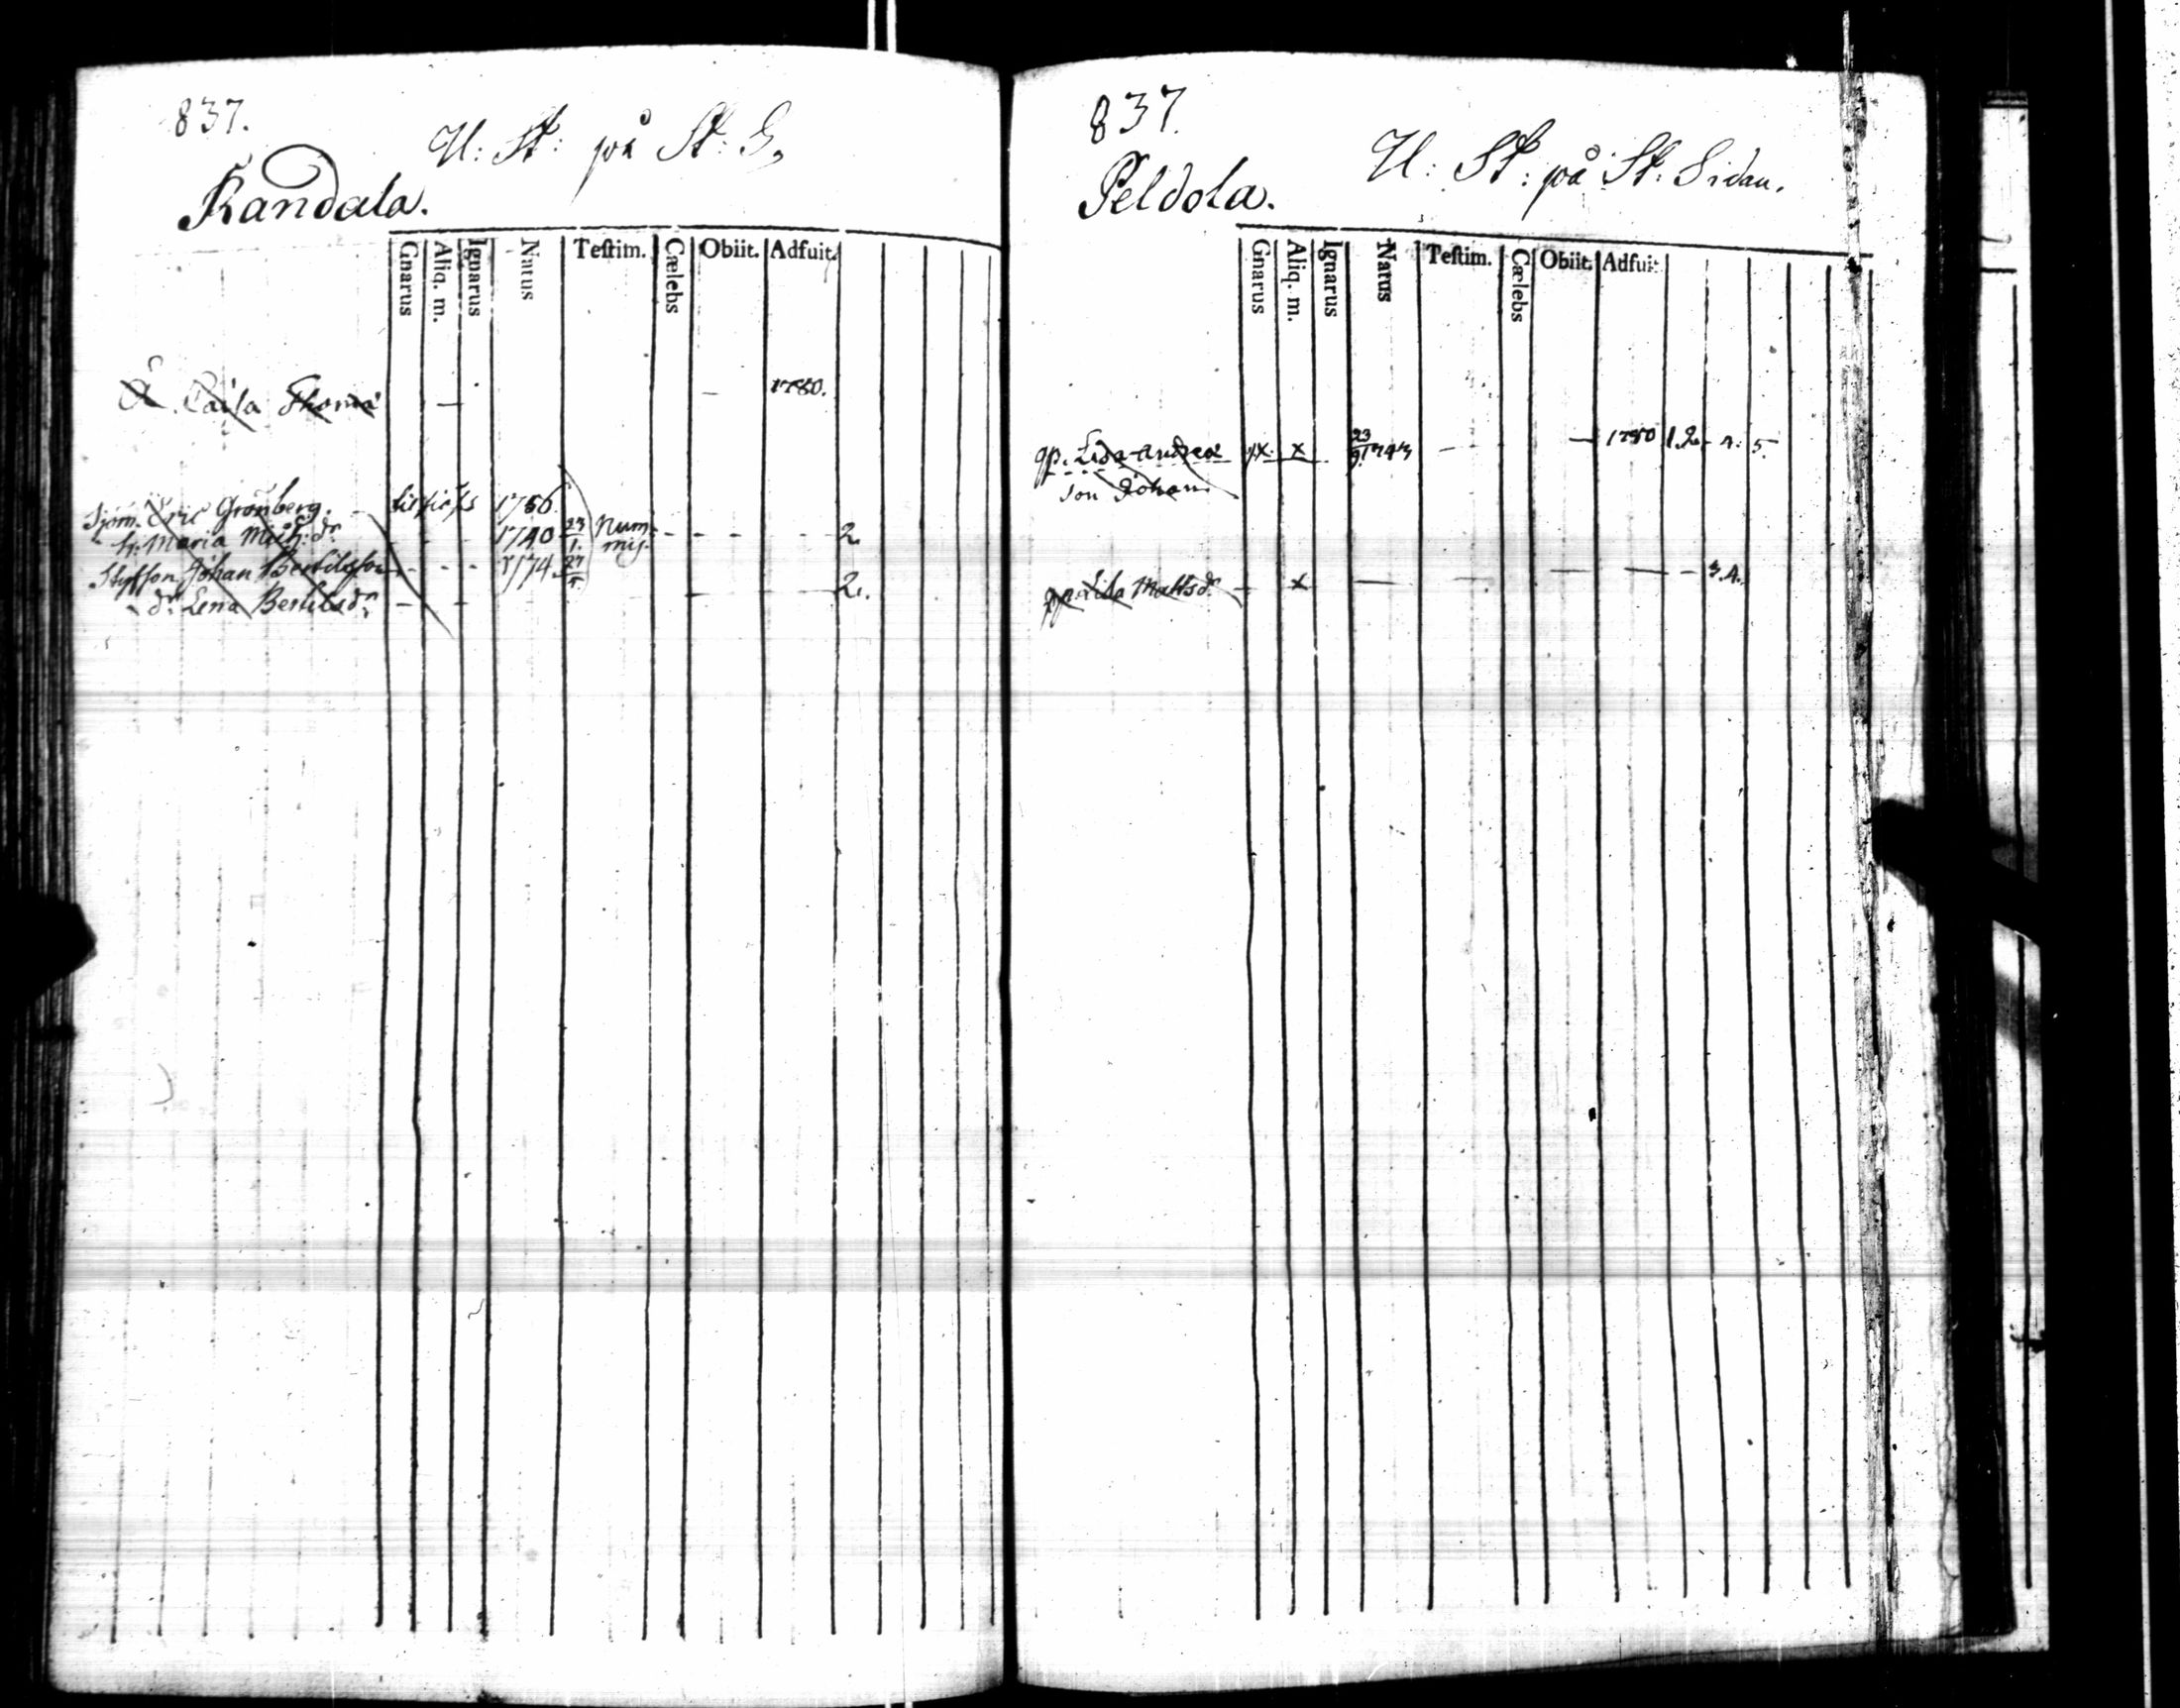 837.
U: St: på St: S,
Kandala.
Gnarus Aliq. m. Ignarus Natus Teſtim. Cælebs Obiit. Adfuit.
Caisa Thomæ — — 1780.
Sjöm. Eric Grönberg. 1756
h: Maria Mich: dr. 1740 23/1. Num: mis. 2.
Styfson Johan Bertilsson 1774 27
dr. Lena Bertilsdr. — — — 2.
837.
U: St: på St: Sidan.
Peldola.
Gnarus Aliq. m. Ignarus Natus Teſtim. Cælebs Obiit. Adfuit
qp. Lisa Andreæ x 23/9 1743 — — 1780 1.2. 4. 5.
Son Johan.
qp. Lisa Mattsdr. — x — — — — — 3.4.